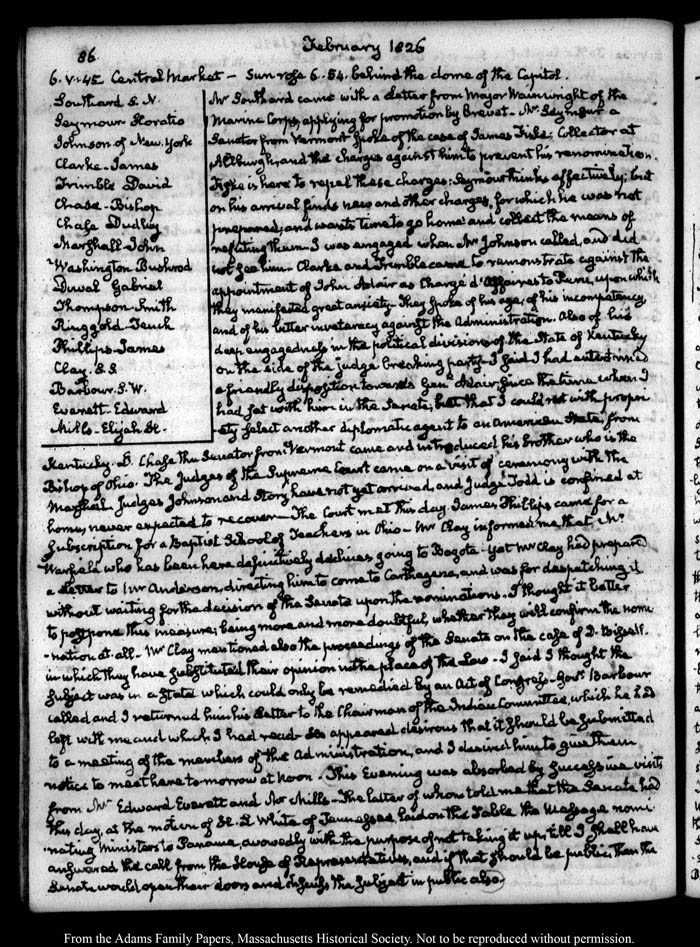 86
February 1826
6. V:45 Central Market – Sun rose 6-54. behind the dome of the Capitol.
Southard S. N.
Seymour Horatio
Johnson of New York
Clarke-James
Trimble David
Chase-Bishop
Chase Dudley
Marshall John
Washington Bushrod
Duval Gabriel
Thompson-Smith
Ringgold-Tench
Phillips-James
Clay. 
Barbour. 
Everett-Edward
Mills-Elijah H.-
Mr Southard came with a Letter from Major Wainwright of the
Marine Corps, applying for promotion by Brevet – Mr Seymour a
Senator from Vermont spoke of the case of James Fisk; Collector at
Allburgh, and the charges against him to prevent his renomination.
Fiske is here to repel these charges; Seymour thinks effectively; but
on his arrival finds new and other charges, for which he was not
prepared, and wants time to go home and collect the means of
refuting them – I was engaged when Mr Johnson called, and did
not see him – Clarke and Trimble came to remonstrate against the
appointment of John Adair as Chargé d'Affaires to Peru, upon which
they manifested great anxiety – They spoke of his age, of his incompetency,
and of his bitter inveteracy against the Administration. Also of his
deep engagedness in the political divisions of the State of Kentucky
on the side of the judge breaking party – I said I had entertained
a friendly disposition towards Genl. Adair, since the time when I
had sat with him in the Senate; but that I could not with propri-
ety select another diplomatic agent to an American State, from
Kentucky. D. Chase the Senator from Vermont came and introduced his brother who is the
Bishop of Ohio. The Judges of the Supreme Court came on a visit of ceremony with the
Marshal. Judges Johnson and Story have not yet arrived, and Judge Todd is confined at
home, never expected to recover – The Court met this day. James Phillips came for a
subscription for a Baptist School of Teachers in Ohio – Mr Clay informed me that Mr
Warfield who has been here definitively declines going to Bogota – yet Mr Clay had prepared
a Letter to Mr Anderson, directing him to come to Carthagena, and was for despatching it
without waiting for the decision of the Senate upon the nominations. I thought it better
to postpone this measure; being more and more doubtful, whether they will confirm the nomi
-nation at all – Mr Clay mentioned also the proceedings of the Senate on the case of D. Bissell.
in which they have substituted their opinion in the place of the Law – I said I thought the
subject was in a State which could only be remedied by an Act of Congress – Govr. Barbour
called and I returned him his Letter to the Chairman of the Indian Committee, which he had
left with me and which I had read – He appeared desirous that it should be submitted
to a meeting of the members of the Administration, and I desired him to give them
notice to meet here to-morrow at Noon – This Evening was absorbed by successive visits
from Mr Edward Everett and Mr Mills – The latter of whom told me that the Senate had
this day, at the motion of H. L White of Tennessee, laid on the Table the Message nomi
-nating Ministers to Panama, avowedly with the purpose of not taking it up, till I shall have
answered the call from the House of Representatives, and if that should be public, then the
Senate would open their doors and discuss the subject in public also.
From the Adams Family Papers, Massachusetts Historical Society. Not to be reproduced without permission.